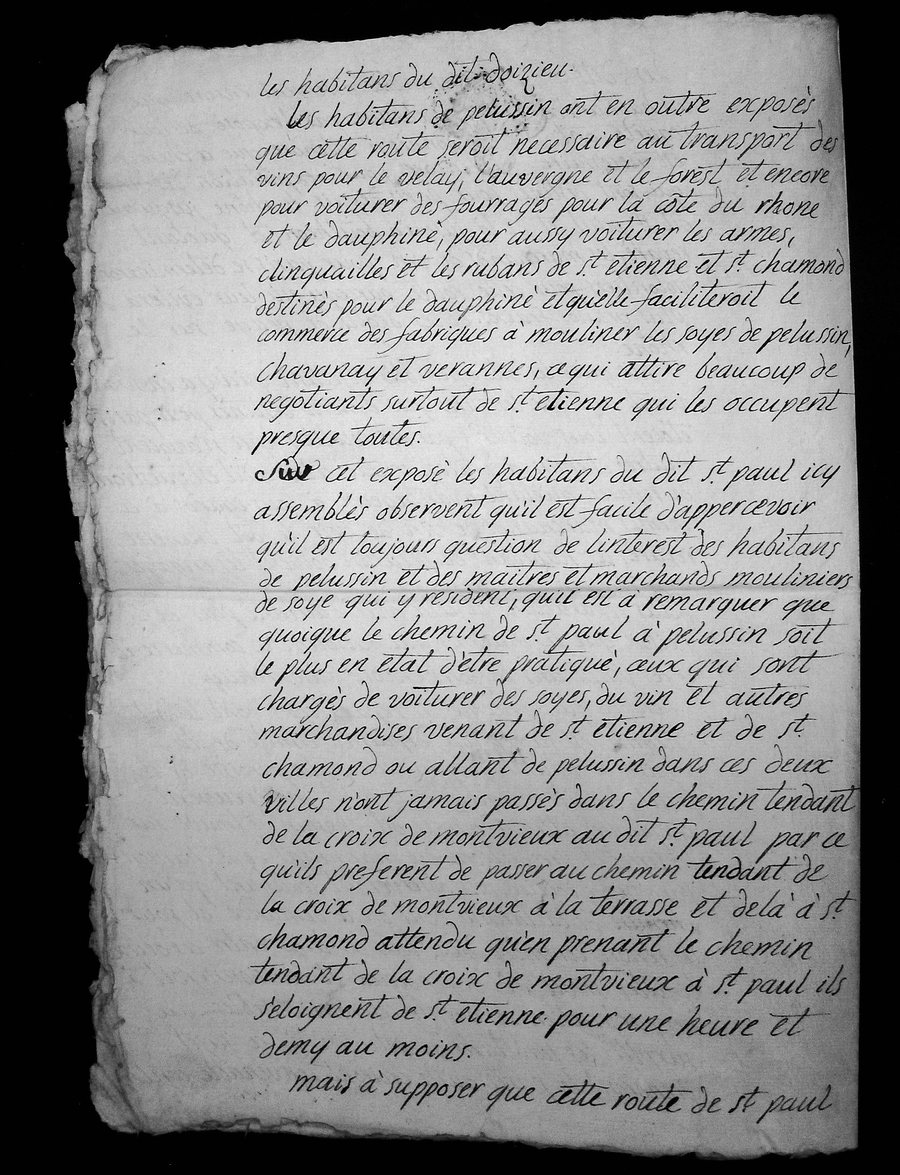 les habitans du dit doizieu.
Les habitans de pelussin ont en outre exposés
que cette route seroit necessaire au transport des
vins pour le velay, l'auvergne et le forest et encore
pour voiturer des fourrages pour la côte du rhone
et le dauphiné, pour aussy voiturer les armes,
clinquailles et les rubans de st. etienne et st. chamond
destinés pour le dauphiné et qu'elle faciliteroit le
commerce des fabriques à mouliner les soyes de pelussin,
chavanay et verannes, ce qui attire beaucoup de
negotiants surtout de st. etienne qui les occupent
presque toutes.
Sur cet exposé les habitans du dit st. paul icy
assemblés observent qu'il est facile d'appercevoir
qu'il est toujours question de l'interest des habitans
de pelussin et des maitres et marchands mouliniers
de soye qui y resident, qu'il est à remarquer que
quoique le chemin de st. paul à pelussin soit
le plus en état d'être pratiqué, ceux qui sont
chargés de voiturer des soyes, du vin et autres
marchandises venant de st. etienne et de st.
chamond ou allant de pelussin dans ces deux
villes n'ont jamais passés dans le chemin tendant
de la croix de montvieux au dit st. paul par ce
qu'ils preferent de passer au chemin tendant de
la croix de montvieux à la terrasse et delà à st.
chamond attendu qu'en prenant le chemin
tendant de la croix de montvieux à st. paul ils
s'eloignent de st. etienne pour une heure et
demy au moins.
mais à supposer que cette route de st. paul